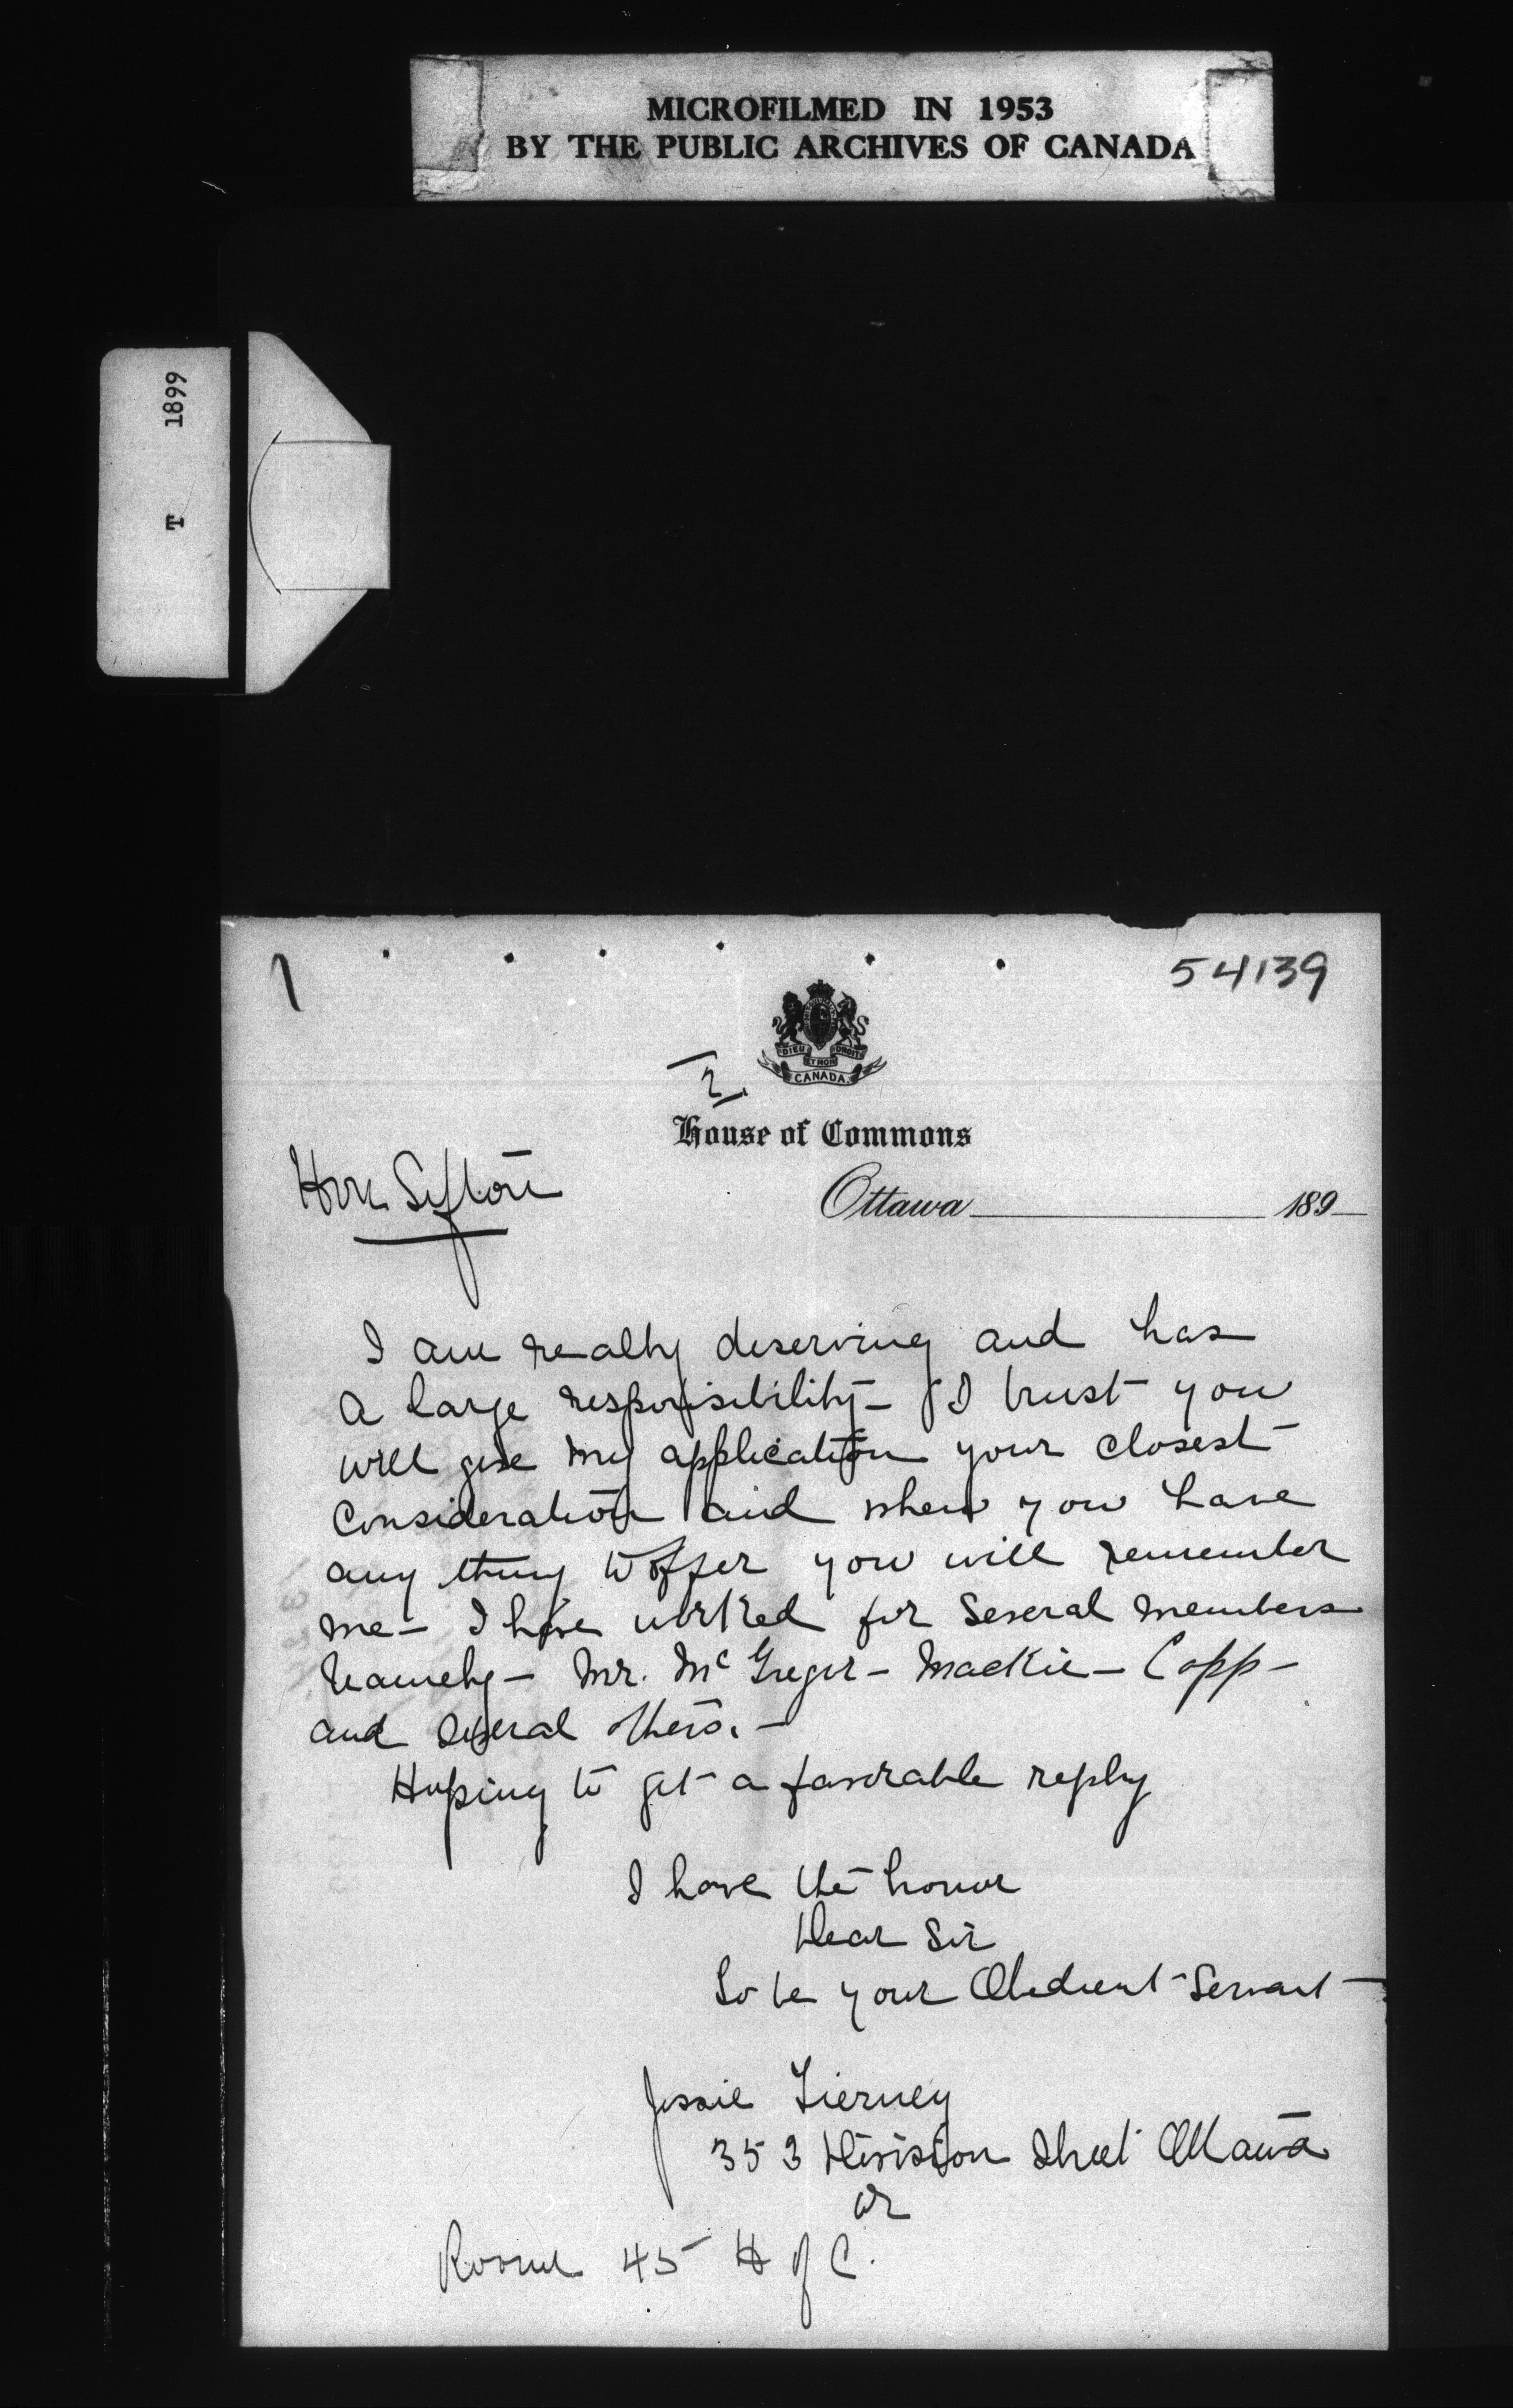 MICROFILMED IN 1953
BY THE PUBLIC ARCHIVES OF CANADA
T 1899
54139
2
DIEU ET MON DROIT
CANADA
House of Commons
Hon Sifton
Ottawa 189
I am really deserving and has
a large responsibility – I trust you
will give my application your closest
consideration and when you have
any thing to offer you will remember
me – I have worked for several members
namely – Mr. McGregor – Mackie – Copp –
and several others. –
Hoping to get a favorable reply
I have the honor
Dear Sir
To be your Obedient Servant
Jessie Tierney
353 Division Street Ottawa
or
Room 45 H of C.